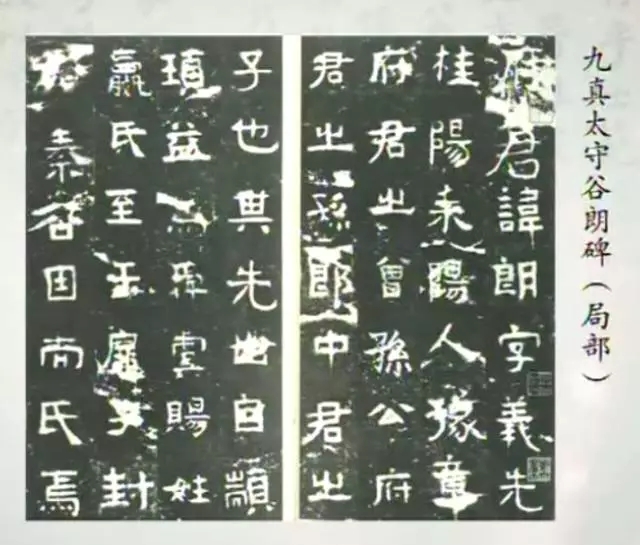 九真太守谷朗碑(局部)
府君諱朗字義先
桂陽耒陽人豫章
府君之曾孫公府
君之孫郎中君之
子也其先世自顓
頊益為舜虞賜姓
嬴氏至于子封
秦谷因而氏焉